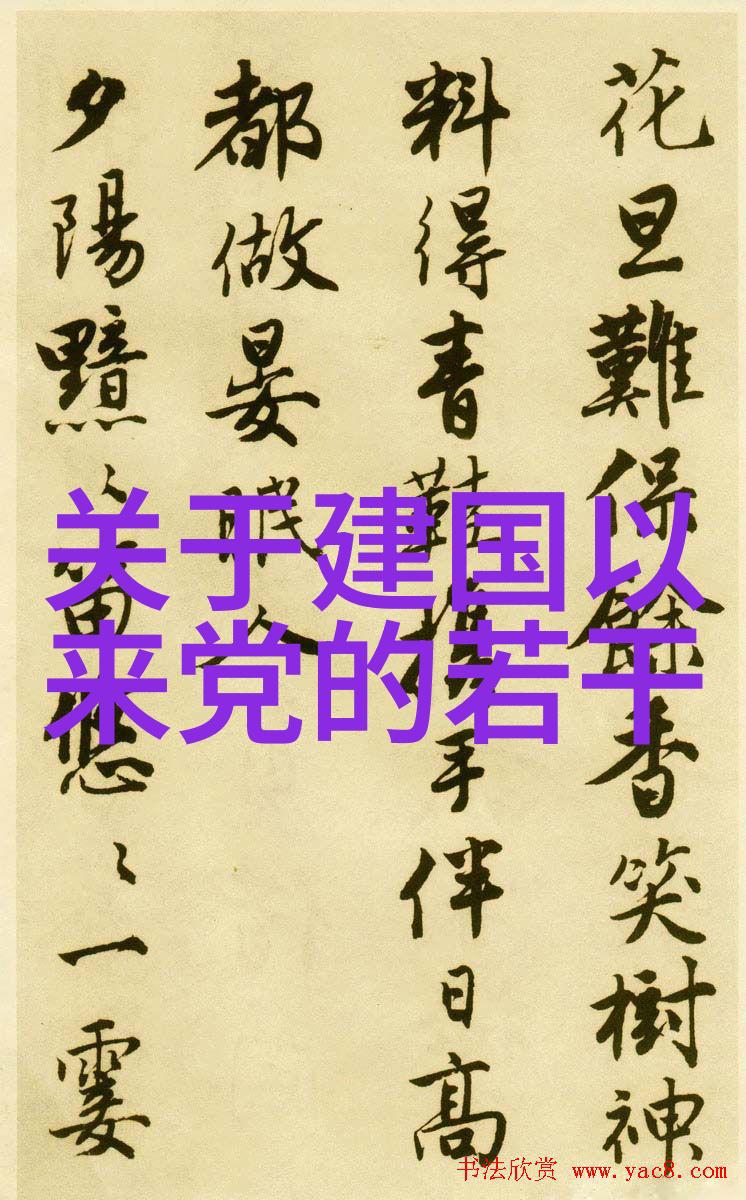 花旦難保餘香笑樹神
料得青鞋携手伴日高
都做晏眠人
夕陽黯〻笛悠〻一霎
关于建国以
来党的若干
书法欣赏 www.yac8.com